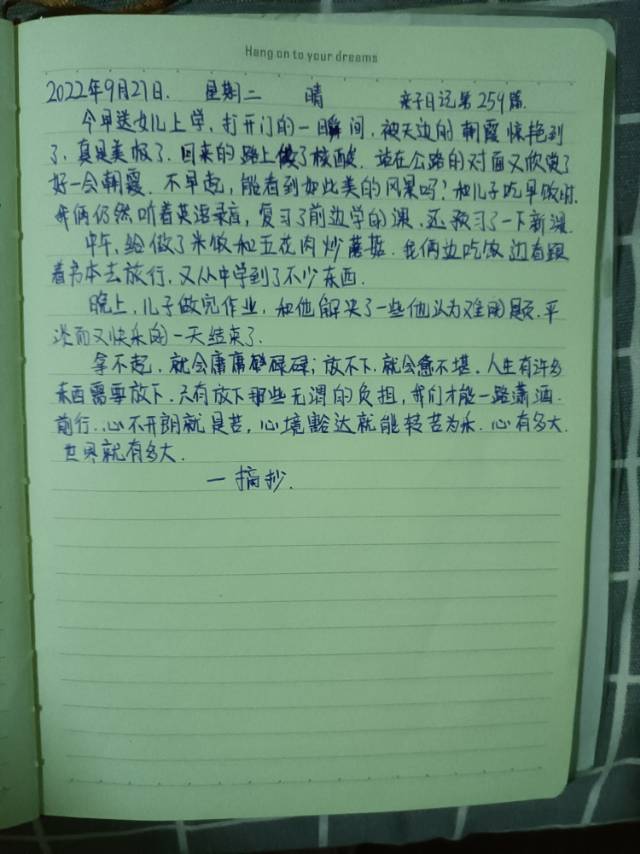 Hang on to your dreams
2022年9月27日. 星期二 晴 亲子日记第259篇.
今早送女儿上学,打开门的一瞬间,被天边的朝霞惊艳到
了,真是美极了.回来的路上做了核酸.站在公路的对面又欣赏了
好一会朝霞.不早起,能看到如此美的风景吗?和儿子吃早饭时.
我俩仍然听着英语录音,复习了前边学的课,还预习了一下新课.
中午,给做了米饭和五花肉炒蘑菇.我俩边吃饭边看跟
着书本去旅行,又从中学到了不少东西.
晚上,儿子做完作业,和他解决了一些他认为难的题.平
淡而又快乐的一天结束了.
拿不起,就会庸庸碌碌;放不下,就会不堪.人生有许多
东西需要放下.只有放下那些无谓的负担,我们才能一路潇洒
前行.心不开朗就是苦,心境豁达就能转苦为乐.心有多大.
世界就有多大.
一摘抄.